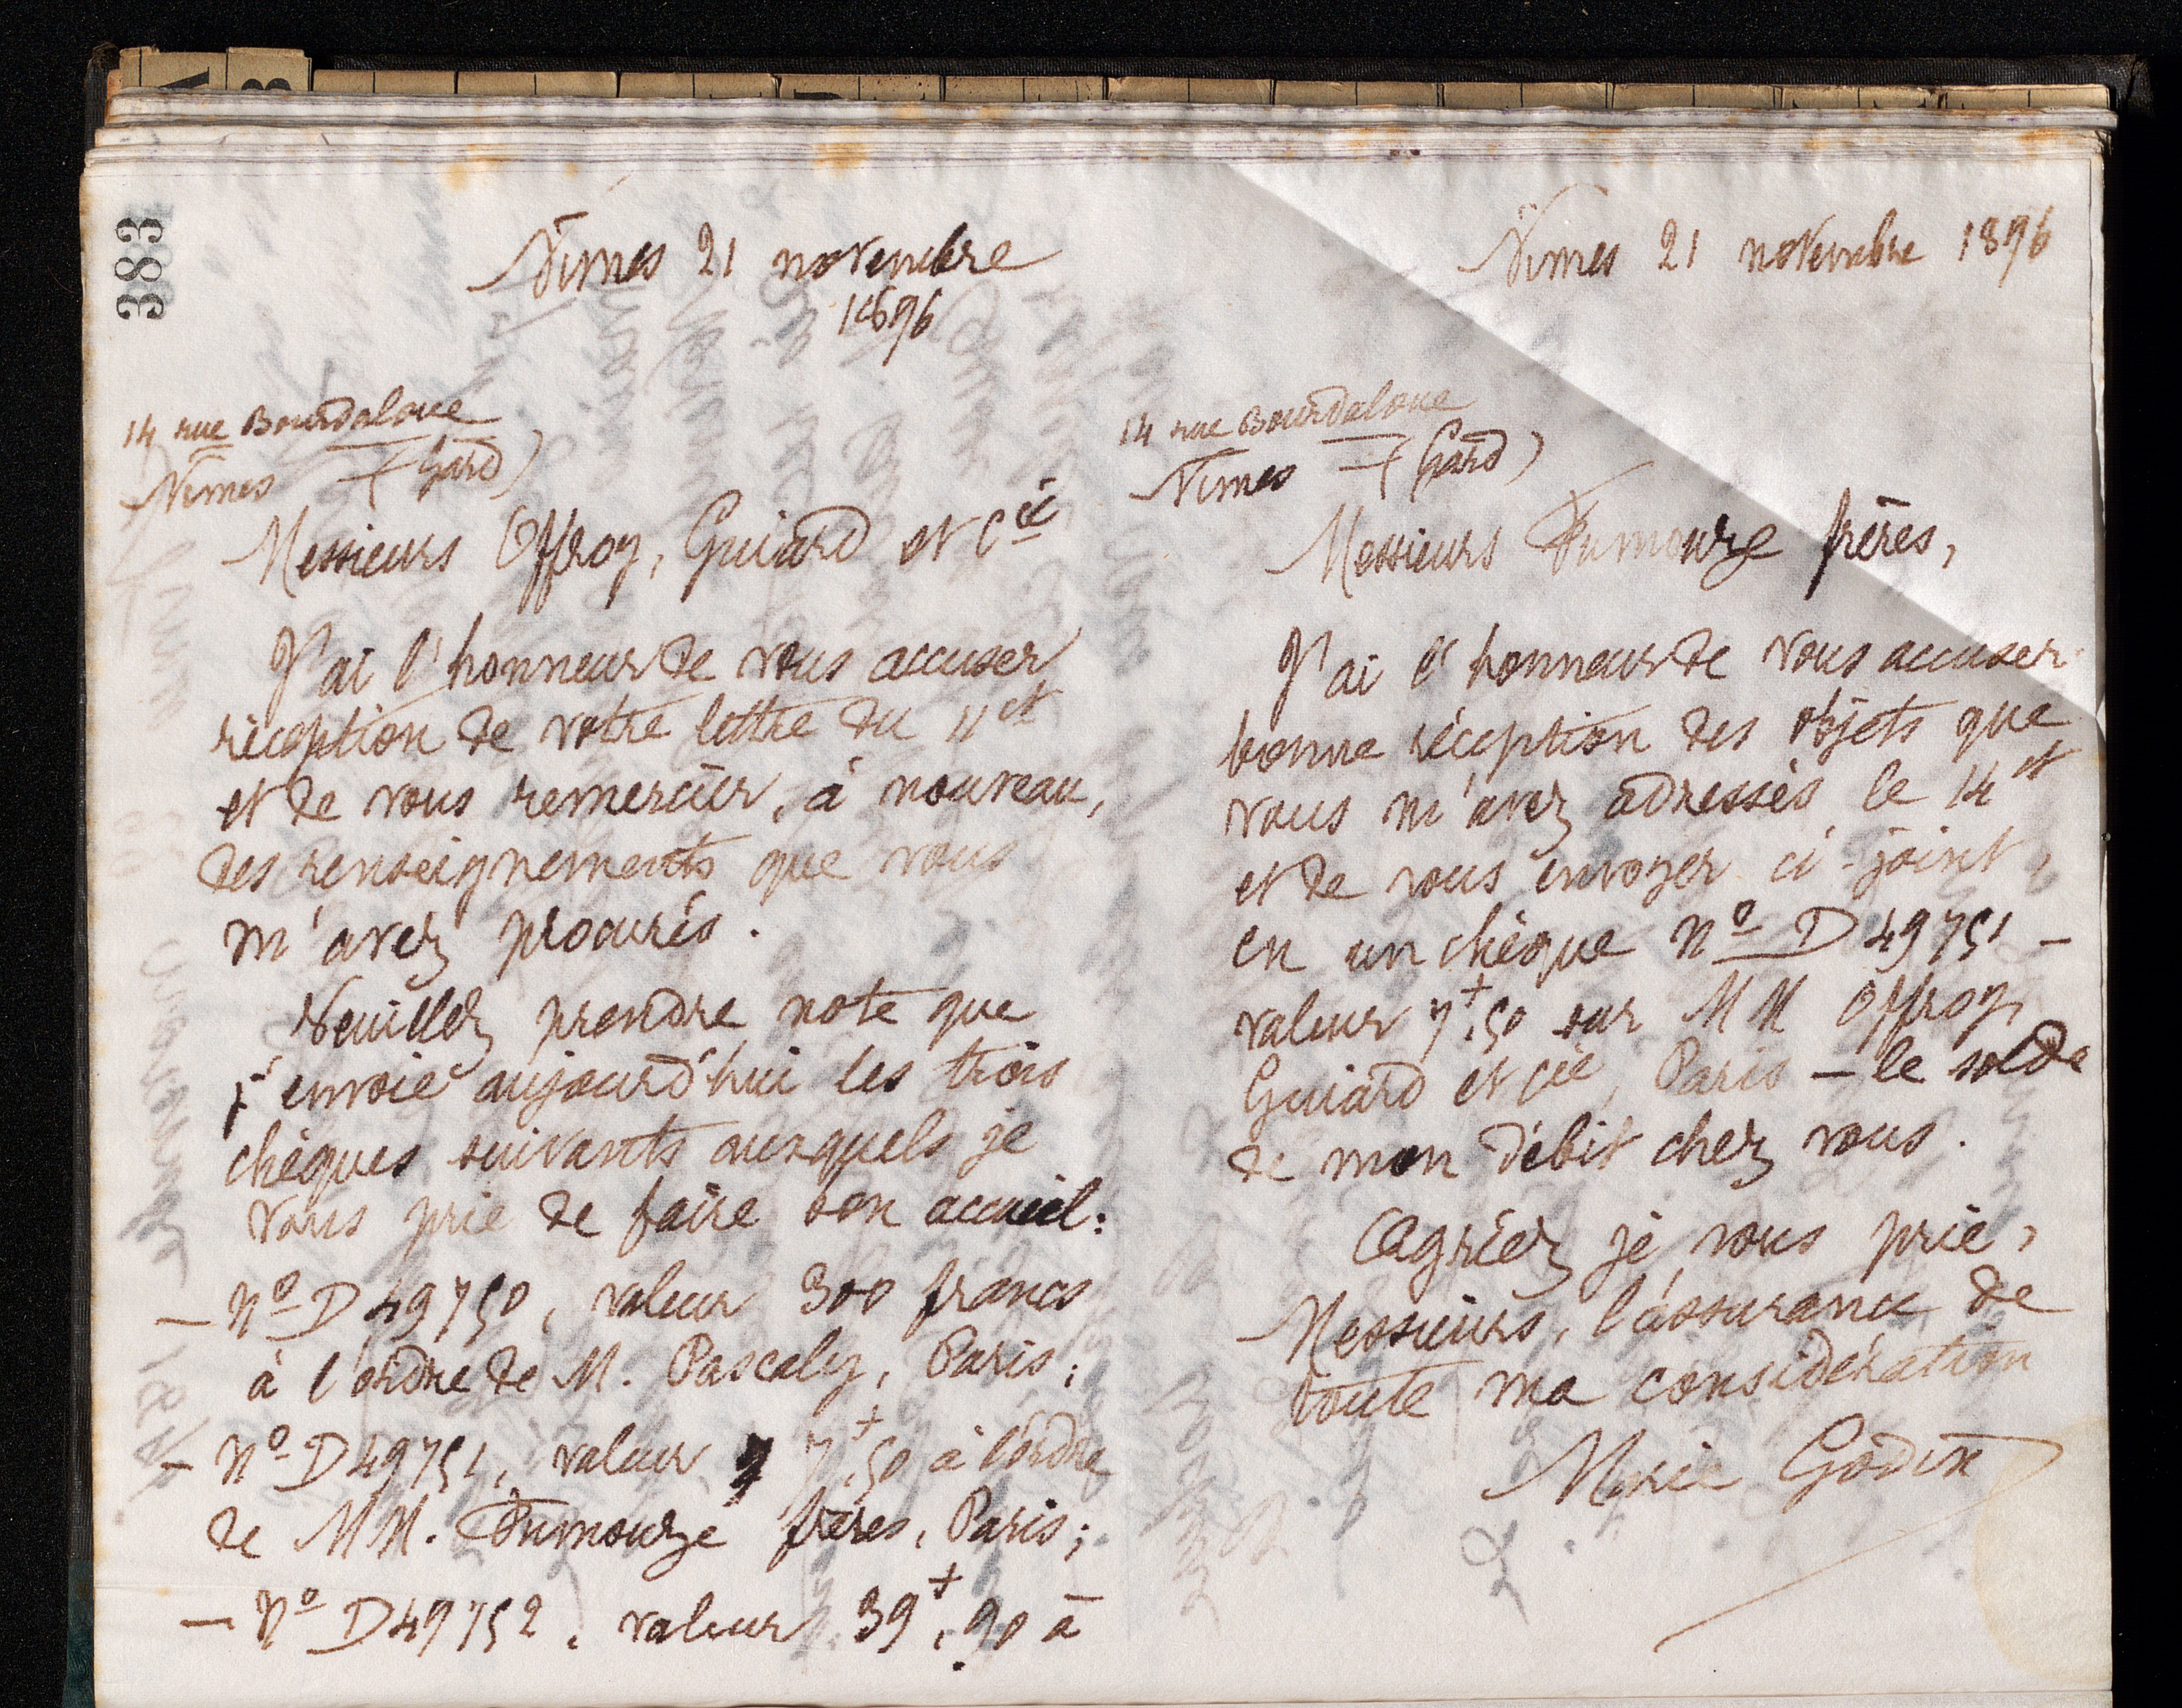 383
Nimes 21 novembre
1896
14 rue Bourdaloue
Nimes — (Gard)
Messieurs Offroy, Guiard et Cie
J'ai l'honneur de vous accuser
réception de votre lettre du 11 ct
et de vous remercier, à nouveau,
des renseignements que vous
m'avez procurés.
Veuillez prendre note que
j'envoie aujourd'hui les trois
chèques suivants auxquels je
vous prie de faire bon accueil:
— No D 49750, valeur 300 francs
à l'ordre de M. Pascaly, Paris;
— No D 49751, valeur 7f,50 à l'ordre
de MM. Fumouze frères, Paris;
— No D 49752, valeur 39f,90 à
Nimes 21 novembre 1896
14 rue Bourdaloue
Nimes — (Gard)
Messieurs Fumouze frères,
J'ai l'honneur de vous accuser
bonne réception des objets que
vous m'avez adressés le 14 ct
et de vous envoyer ci-joint,
en un chèque No D 49751 —
valeur 7f,50 sur MM Offroy,
Guiard et Cie, Paris — le solde
de mon débit chez vous.
Agréez je vous prie,
Messieurs, l'assurance de
toute ma considération
Marie Godin